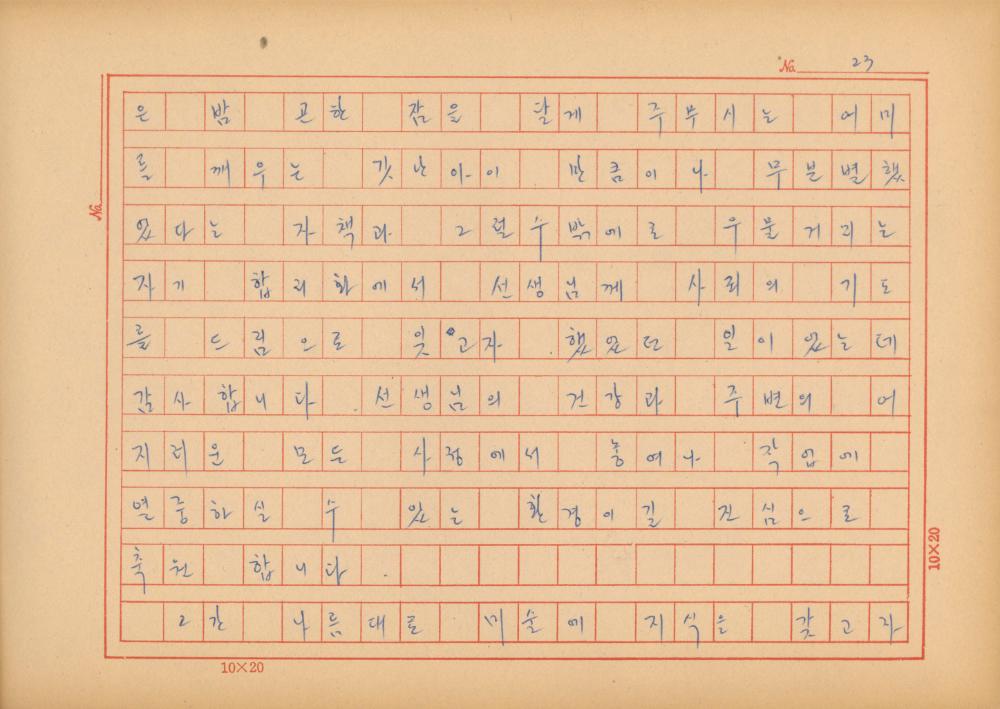 No. 23
은 밤 곤한 잠을 달게 주무시는 어미
를 깨우는 갓난아이 만큼이나 무분별했
었다는 자책과 그럴수밖에로 우물거리는
자기 합리화에서 선생님께 사죄의 기도
를 드림으로 잊고자 했었던 일이 있는데
감사합니다. 선생님의 건강과 주변의 어
지러운 모든 사정에서 놓여나 작업에
열중하실 수 있는 환경이길 진심으로
축원 합니다.
그간 나름대로 미술에 지식을 갖고자
No.
10×20
10×20